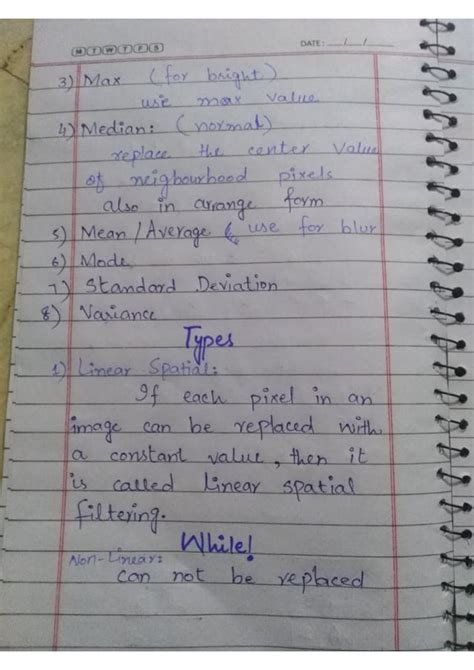 M T W T F S
DATE: __/__/__
3) Max (for bright)
use max value
4) Median: (normal)
replace the center value
of neighbourhood pixels
also in arrange form
5) Mean/Average ( use for blur
6) Mode
7) Standard Deviation
8) Variance
Types
1) Linear Spatial:
If each pixel in an
image can be replaced with
a constant value, then it
is called linear spatial
filtering.
While!
Non-Linear:
can not be replaced